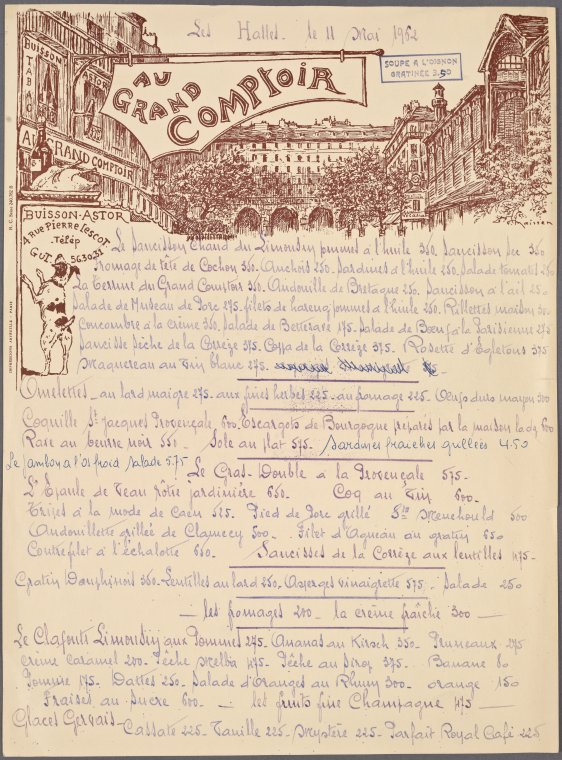 Les Halles - le 11 Mai 1962
SOUPE A L'OIGNON
GRATINEE 3.50
AU
GRAND
COMPTOIR
BUISSON
ASTOR
TABAC
AU GRAND COMPTOIR
BUISSON-ASTOR
4 RUE PIERRE LESCOT
TÉLÉP
GUT. 56.30.31
Le Saucisson Chaud du Limousin pommes à l'huile 350, Saucisson Sec 350
Fromage de tête de Cochon 350. Anchois 250. Sardines à l'huile 250. Salade tomates 250
La Terrine du Grand Comptoir 350. Andouille de Bretagne 250. Saucisson à l'ail 250
Salade de Museau de Porc 275. filets de hareng pommes à l'huile 250. Rillettes maison 300
Concombre à la Crème 350. Salade de Betterave 175. Salade de Bœuf à la Parisienne 275
Saucisse Sèche de la Corrèze 375. Coppa de la Corrèze 375. Rosette d'Egletons 375
Maquereau au Vin blanc 275.
Omelettes - au lard maigre 275. aux fines herbes 225. au fromage 225. Œufs durs mayon 200
Coquille St Jacques Provençale 600. Escargots de Bourgogne préparés par la maison la dz 600
Raie au beurre noir 550 - Sole au plat 575. Sardines fraiches grillées 4.50
Le jambon à l'os froid salade 5.75
Le Gras-Double à la Provençale 575-
L'Epaule de Veau rôtie jardinière 650. Coq au Vin 600.
Tripes à la mode de Caen 525. Pied de Porc grillé Ste Menehould 500
Andouillette grillée de Clamecy 500. Filet d'Agneau au gratin 650
Contrefilet à l'échalotte 650 - Saucisses de la Corrèze aux lentilles 475-
Gratin Dauphinois 350- Lentilles au lard 250- Asperges vinaigrette 575. Salade 250
- les fromages 200 - la crème fraîche 300 -
Le Clafouti Limousin aux Pommes 275. Ananas au Kirsch 350- Pruneaux 275
Crème Caramel 200. Pêche Melba 475. Pêche au Sirop 375. Banane 80
Pomme 175. Dattes 250. Salade d'Oranges au Rhum 300- orange 150
Fraises au Sucre 600 - les fruits fine Champagne 475 -
Glaces Gervais-
Cassate 225- Vanille 225- Mystère 225- Parfait Royal Café 225